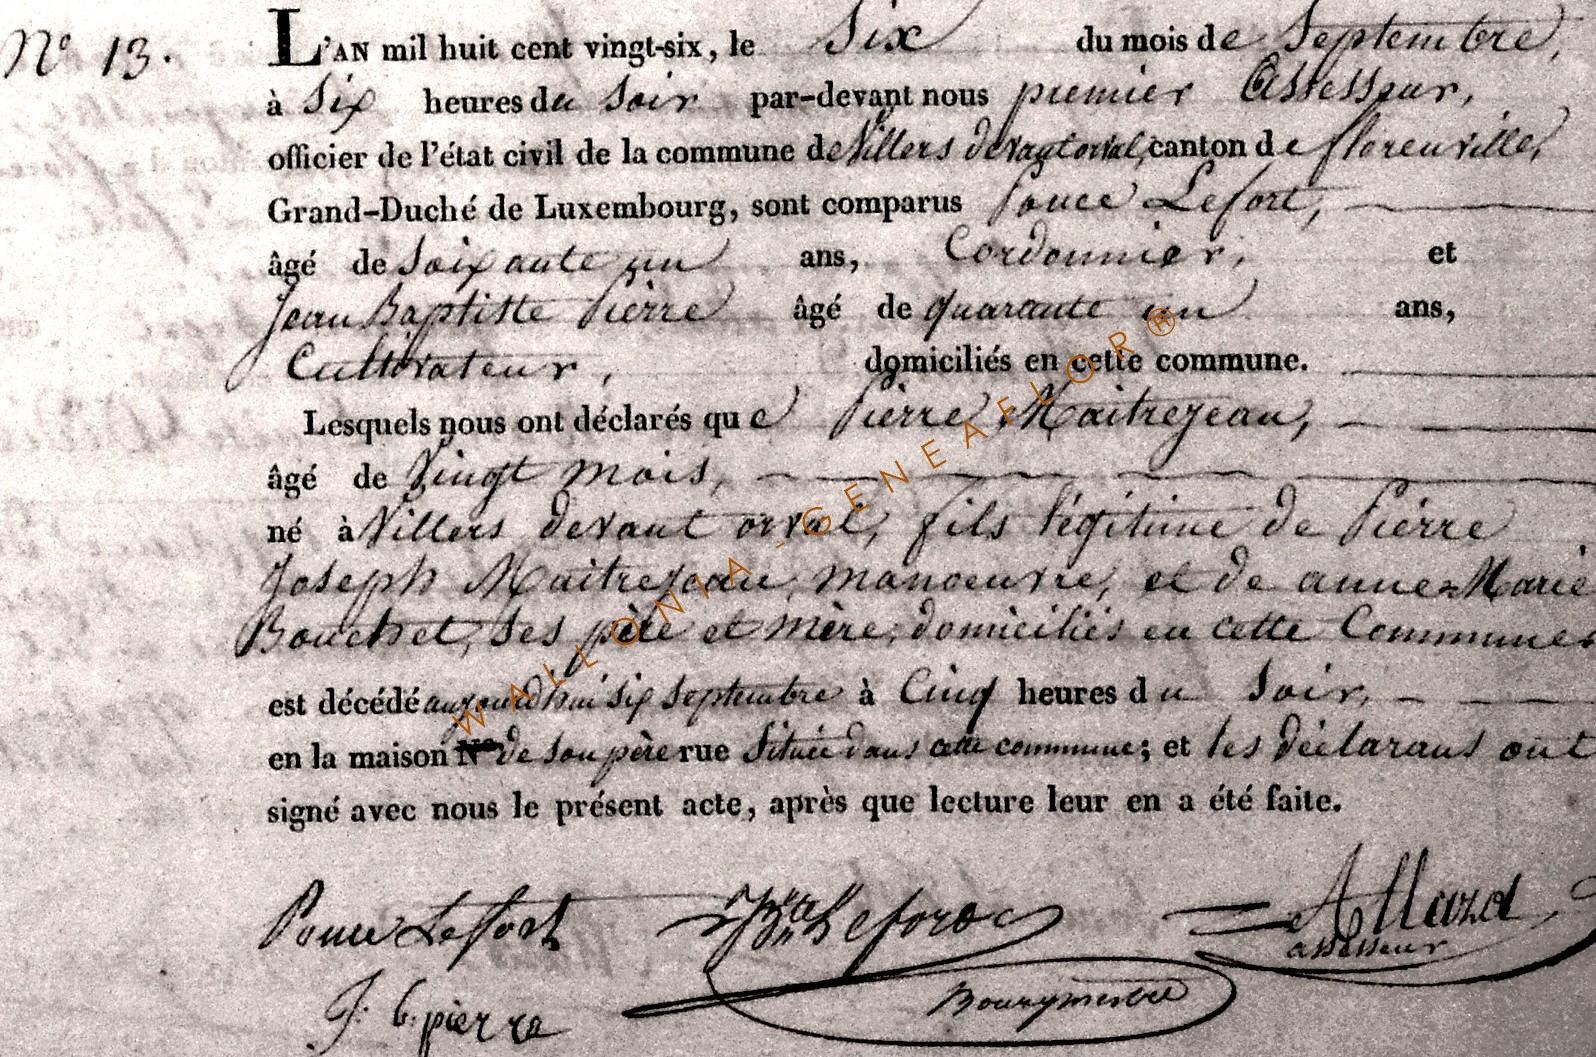 N° 13. L'AN mil huit cent vingt-six, le Six du mois de Septembre,
à Six heures du Soir par-devant nous premier Assesseur,
officier de l'état civil de la commune de Villers devant orval, canton de florenville,
Grand-Duché de Luxembourg, sont comparus Ponce Lefort,
âgé de Soixante un ans, Cordonnier, et
Jean Baptiste Pierre âgé de quarante un ans,
Cultivateur, domiciliés en cette commune.
Lesquels nous ont déclarés que Pierre Maitrejean,
âgé de Vingt mois,
né à Villers devant orval, fils légitime de Pierre
Joseph Maitrejean, manoeuvre, et de anne Marie
Bouchet, ses père et mère, domiciliés en cette Commune
est décédé aujourd'hui six septembre à Cinq heures du Soir,
en la maison N° de son père rue Située dans cette commune; et les déclarans ont
signé avec nous le présent acte, après que lecture leur en a été faite.
Ponce Lefort
Allard
assesseur
J. b. pierre
Bourgmestre
WALLONIA-GENEAFLOR®